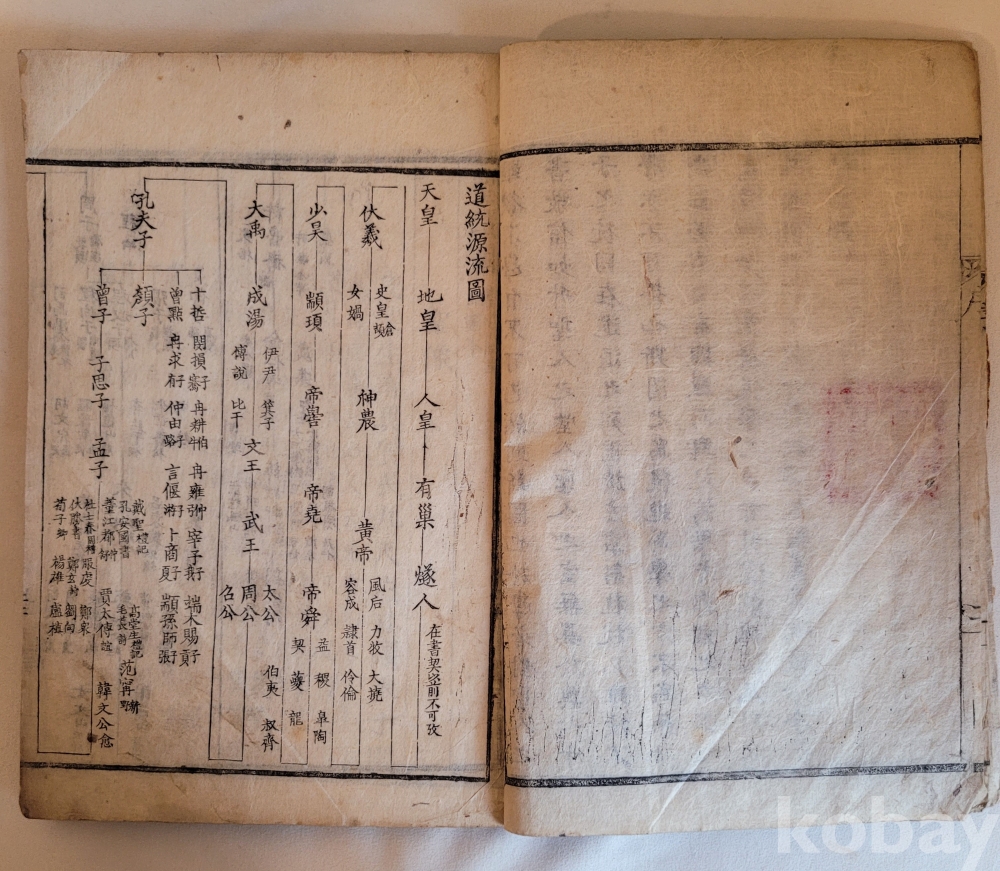 道統源流圖
天皇 地皇 人皇 有巢 燧人 在書契前不可攷
伏羲 神農 黃帝
史皇倉頡 風后 力牧 大撓
女媧 容成 隷首 伶倫
少昊 顓頊 帝嚳 帝堯 帝舜
益 稷 皐陶
契 夔 龍
大禹 成湯 文王 武王
伊尹 箕子 太公 伯夷 叔齊
傅說 比干 周公
召公
孔夫子
十哲 閔損子騫 冉耕伯牛 冉雍仲弓 宰予子我 端木賜子貢
曾點 冉求子有 仲由子路 言偃子游 卜商子夏 顓孫師子張
顏子
曾子 子思子 孟子
戴聖禮記 高堂生禮記 范甯
孔安國書 毛萇詩
董江都仲舒 賈太傅誼 韓文公愈
杜士春周禮 服虔 鄭衆
伏勝書 鄭玄 劉向
荀子卿 楊雄 盧植
kobay